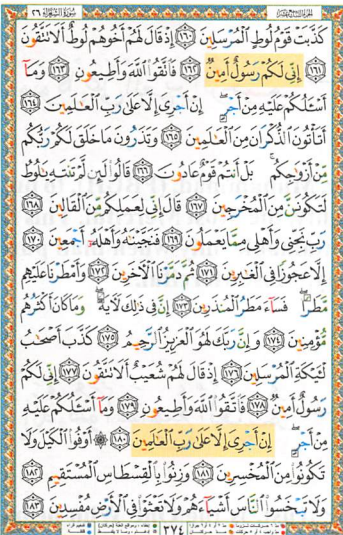 سُورَةُ الشُّعَرَاءِ ٢٦
الجزء التاسع عشر
كَذَّبَتْ قَوْمُ لُوطٍ الْمُرْسَلِينَ ١٦٠ إِذْ قَالَ لَهُمْ أَخُوهُمْ لُوطٌ أَلَا تَتَّقُونَ
١٦١ إِنِّي لَكُمْ رَسُولٌ أَمِينٌ ١٦٢ فَاتَّقُوا اللَّهَ وَأَطِيعُونِ ١٦٣ وَمَآ
أَسْـَٔلُكُمْ عَلَيْهِ مِنْ أَجْرٍ إِنْ أَجْرِيَ إِلَّا عَلَى رَبِّ الْعَٰلَمِينَ ١٦٤
أَتَأْتُونَ الذُّكْرَانَ مِنَ الْعَٰلَمِينَ ١٦٥ وَتَذَرُونَ مَا خَلَقَ لَكُمْ رَبُّكُمْ
مِّنْ أَزْوَٰجِكُم بَلْ أَنتُمْ قَوْمٌ عَادُونَ ١٦٦ قَالُوا لَئِن لَّمْ تَنتَهِ يَٰلُوطُ
لَتَكُونَنَّ مِنَ الْمُخْرَجِينَ ١٦٧ قَالَ إِنِّي لِعَمَلِكُم مِّنَ الْقَالِينَ ١٦٨
رَبِّ نَجِّنِي وَأَهْلِي مِمَّا يَعْمَلُونَ ١٦٩ فَنَجَّيْنَٰهُ وَأَهْلَهُۥٓ أَجْمَعِينَ ١٧٠
إِلَّا عَجُوزًا فِي الْغَٰبِرِينَ ١٧١ ثُمَّ دَمَّرْنَا الْآخَرِينَ ١٧٢ وَأَمْطَرْنَا عَلَيْهِم
مَّطَرًا فَسَآءَ مَطَرُ الْمُنذَرِينَ ١٧٣ إِنَّ فِي ذَٰلِكَ لَآيَةً وَمَا كَانَ أَكْثَرُهُم
مُّؤْمِنِينَ ١٧٤ وَإِنَّ رَبَّكَ لَهُوَ الْعَزِيزُ الرَّحِيمُ ١٧٥ كَذَّبَ أَصْحَٰبُ
لْـَٔيْكَةِ الْمُرْسَلِينَ ١٧٦ إِذْ قَالَ لَهُمْ شُعَيْبٌ أَلَا تَتَّقُونَ ١٧٧ إِنِّي لَكُمْ
رَسُولٌ أَمِينٌ ١٧٨ فَاتَّقُوا اللَّهَ وَأَطِيعُونِ ١٧٩ وَمَآ أَسْـَٔلُكُمْ عَلَيْهِ
مِنْ أَجْرٍ إِنْ أَجْرِيَ إِلَّا عَلَى رَبِّ الْعَٰلَمِينَ ١٨٠ ۞ أَوْفُوا الْكَيْلَ وَلَا
تَكُونُوا مِنَ الْمُخْسِرِينَ ١٨١ وَزِنُوا بِالْقِسْطَاسِ الْمُسْتَقِيمِ ١٨٢
وَلَا تَبْخَسُوا النَّاسَ أَشْيَآءَهُمْ وَلَا تَعْثَوْا فِي الْأَرْضِ مُفْسِدِينَ ١٨٣
٣٧٤